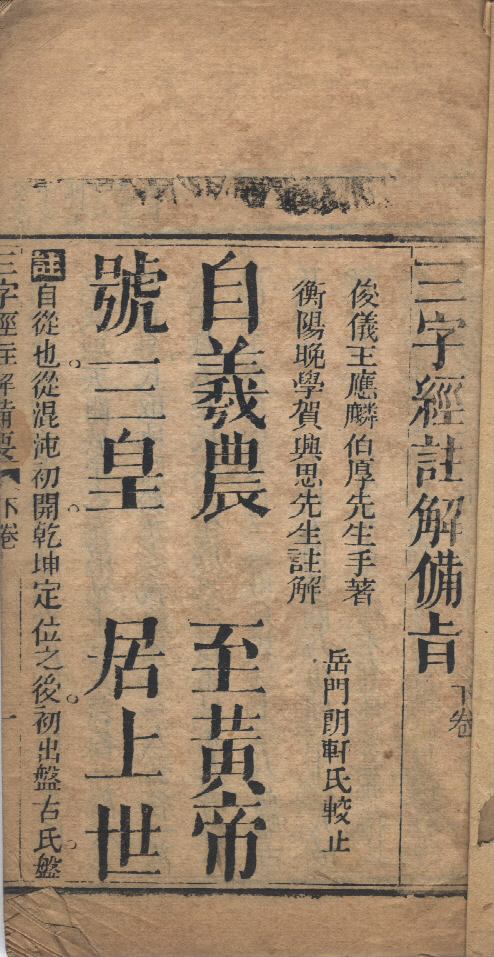 三字經註解備旨 下卷
俊儀王應麟伯厚先生手著
衡陽晚學賀興思先生註解
岳門朗軒氏較正
自羲農 至黃帝
號三皇 居上世
註自從也從混沌初開乾坤定位之後初出盤古氏盤
三字經註解備要 下卷 一